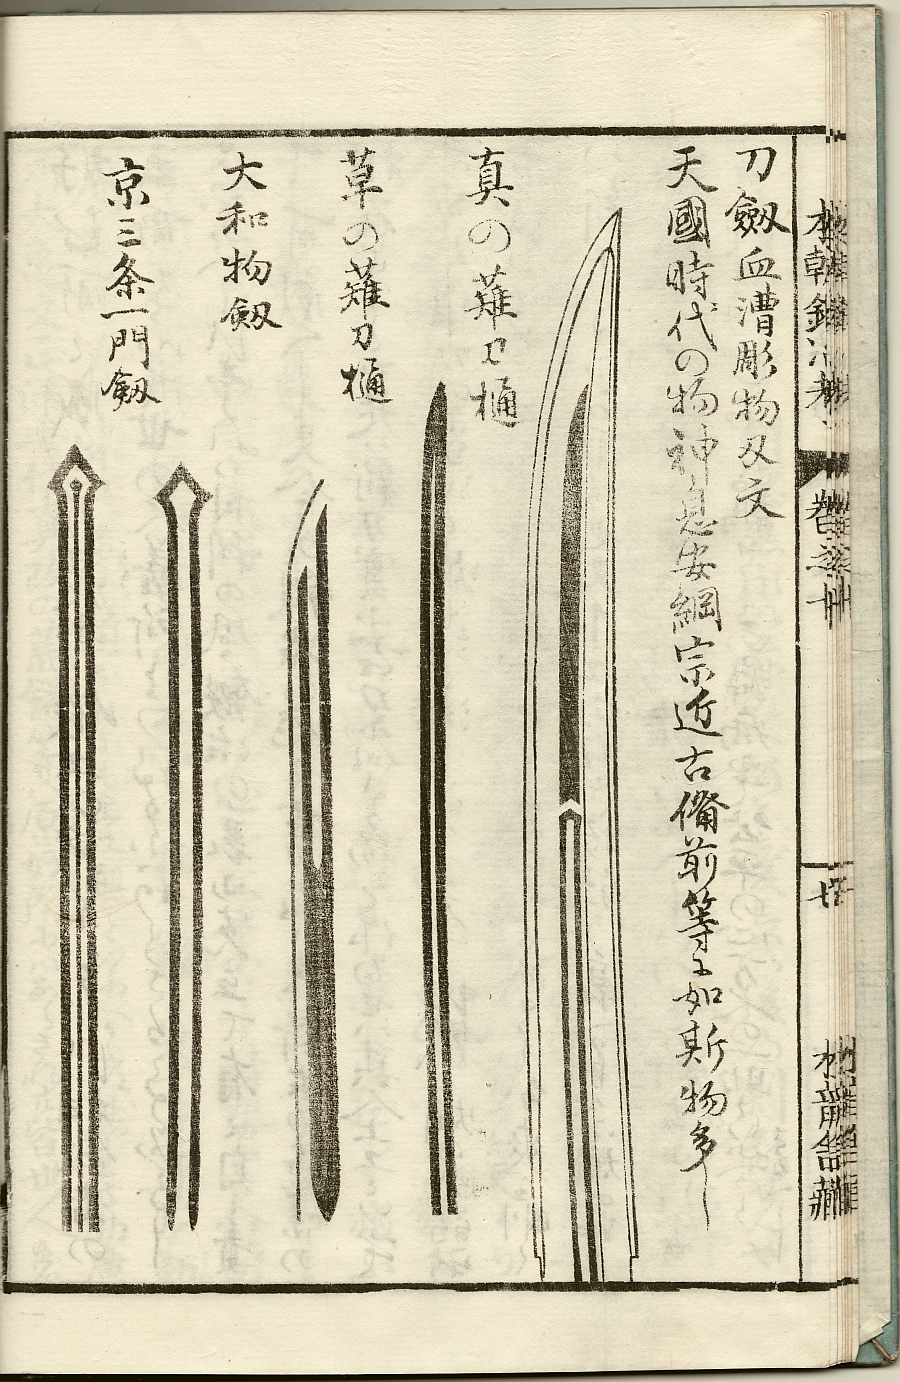 刀劔血漕彫物及文
天國時代の物神息安綱宗近古備前等に如斯物多し
真の薙刀樋
草の薙刀樋
大和物劔
京三条一門劔
本朝鍛冶考